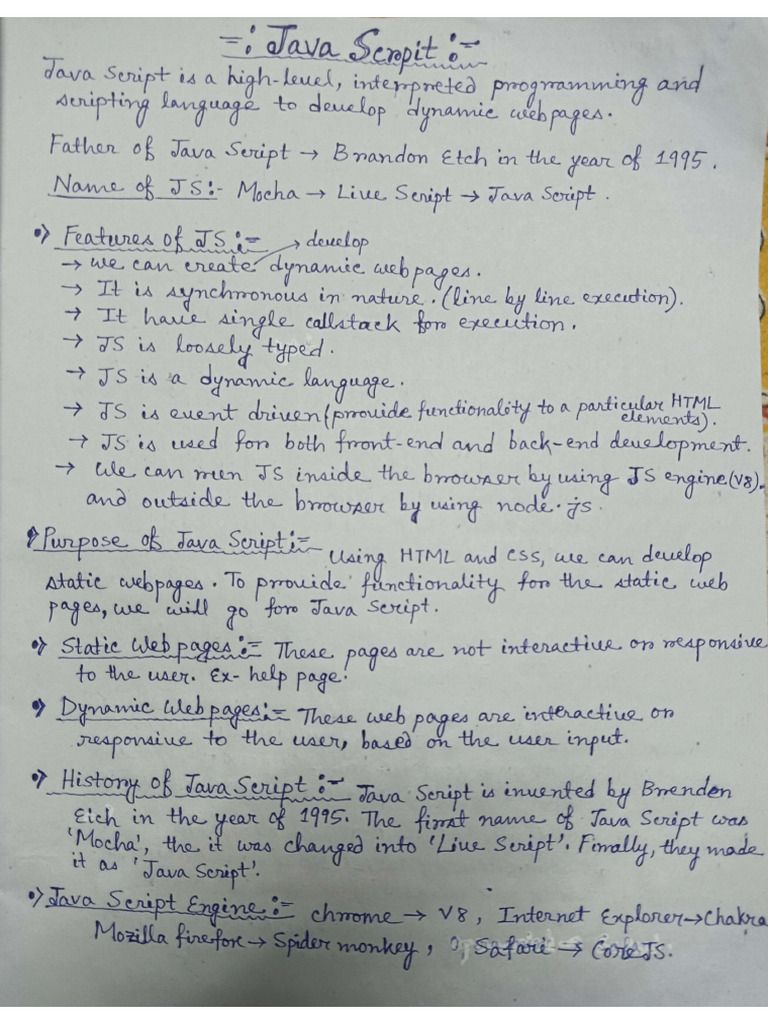 =: Java Scropit :=
Java Script is a high-level, interpreted programming and
scripting language to develop dynamic webpages.
Father of Java Script → Brandon Etch in the year of 1995.
Name of JS:- Mocha → Live Script → Java Script.
•) Features of JS :=
→ develop
→ we can create dynamic webpages.
→ It is synchronous in nature. (line by line execution).
→ It have single callstack for execution.
→ JS is loosely typed.
→ JS is a dynamic language.
→ JS is event driven (provide functionality to a particular HTML
elements).
→ JS is used for both front-end and back-end development.
→ We can run JS inside the browser by using JS engine (V8).
and outside the browser by using node.js.
•) Purpose of Java Script :- Using HTML and CSS, we can develop
static webpages. To provide functionality for the static web
pages, we will go for Java Script.
•) Static Web pages := These pages are not interactive or responsive
to the user. Ex- help page.
•) Dynamic Web pages := These web pages are interactive or
responsive to the user, based on the user input.
•) History of Java Script :- Java Script is invented by Brendon
Eich in the year of 1995. The first name of Java Script was
'Mocha', the it was changed into 'Live Script'. Finally, they made
it as 'Java Script'.
•) Java Script Engine := chrome → V8, Internet Explorer → Chakra
Mozilla firefore → Spider monkey, Safari → Core JS.